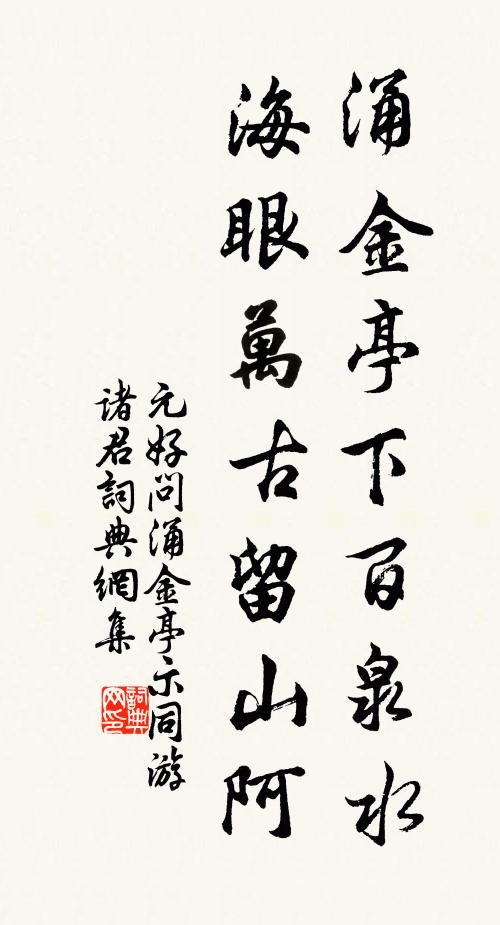 涌金亭下百泉水
海眼萬古留山阿
元好問涌金亭示同游
諸君詞典網集
詞典网印